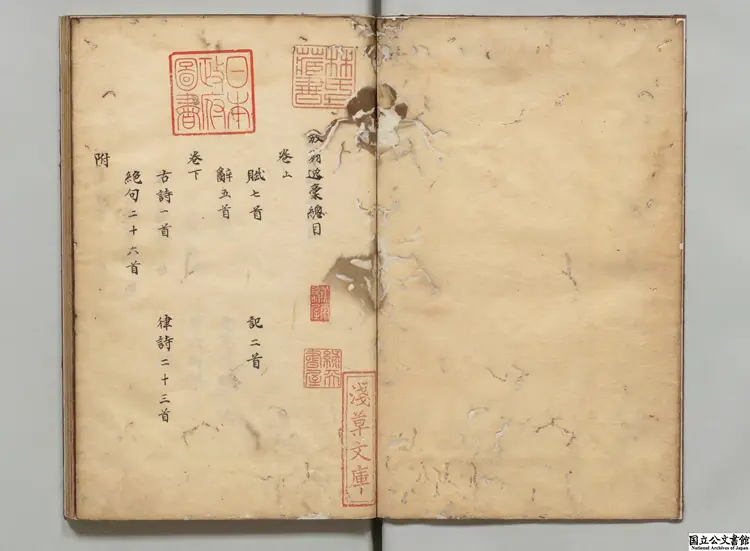 放翁逸稾總目
卷上
賦七首
記二首
辭五首
卷下
古詩一首
律詩二十三首
絕句二十六首
附
日本
政府
圖書
林氏
藏書
淺草文庫
国立公文書館
National Archives of Japan